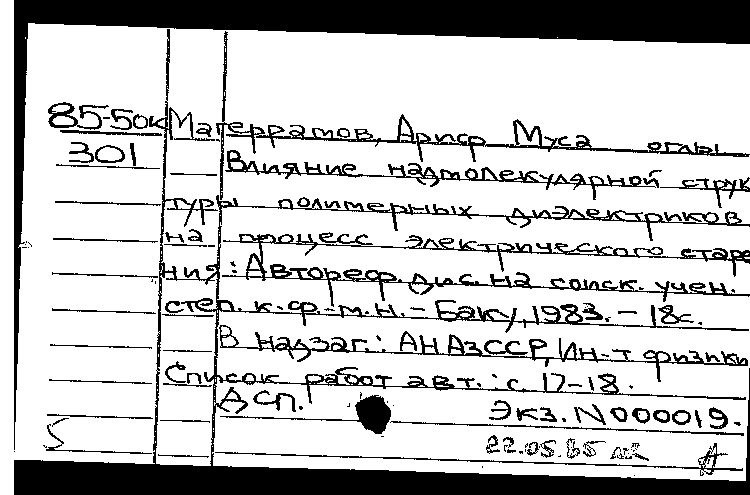 85-50к Магеррамов, Ариф Муса оглы
301 Влияние надмолекулярной струк
туры полимерных диэлектриков
на процесс электрического старе
ния: Автореф. дис. на соиск. учен.
степ. к.ф.-м.н. - Баку, 1983. - 18с.
В надзаг.: АН АзССР, Ин-т физики
Список работ авт.: с. 17-18.
ДСП.
Экз. N000019.
5 22.05.85